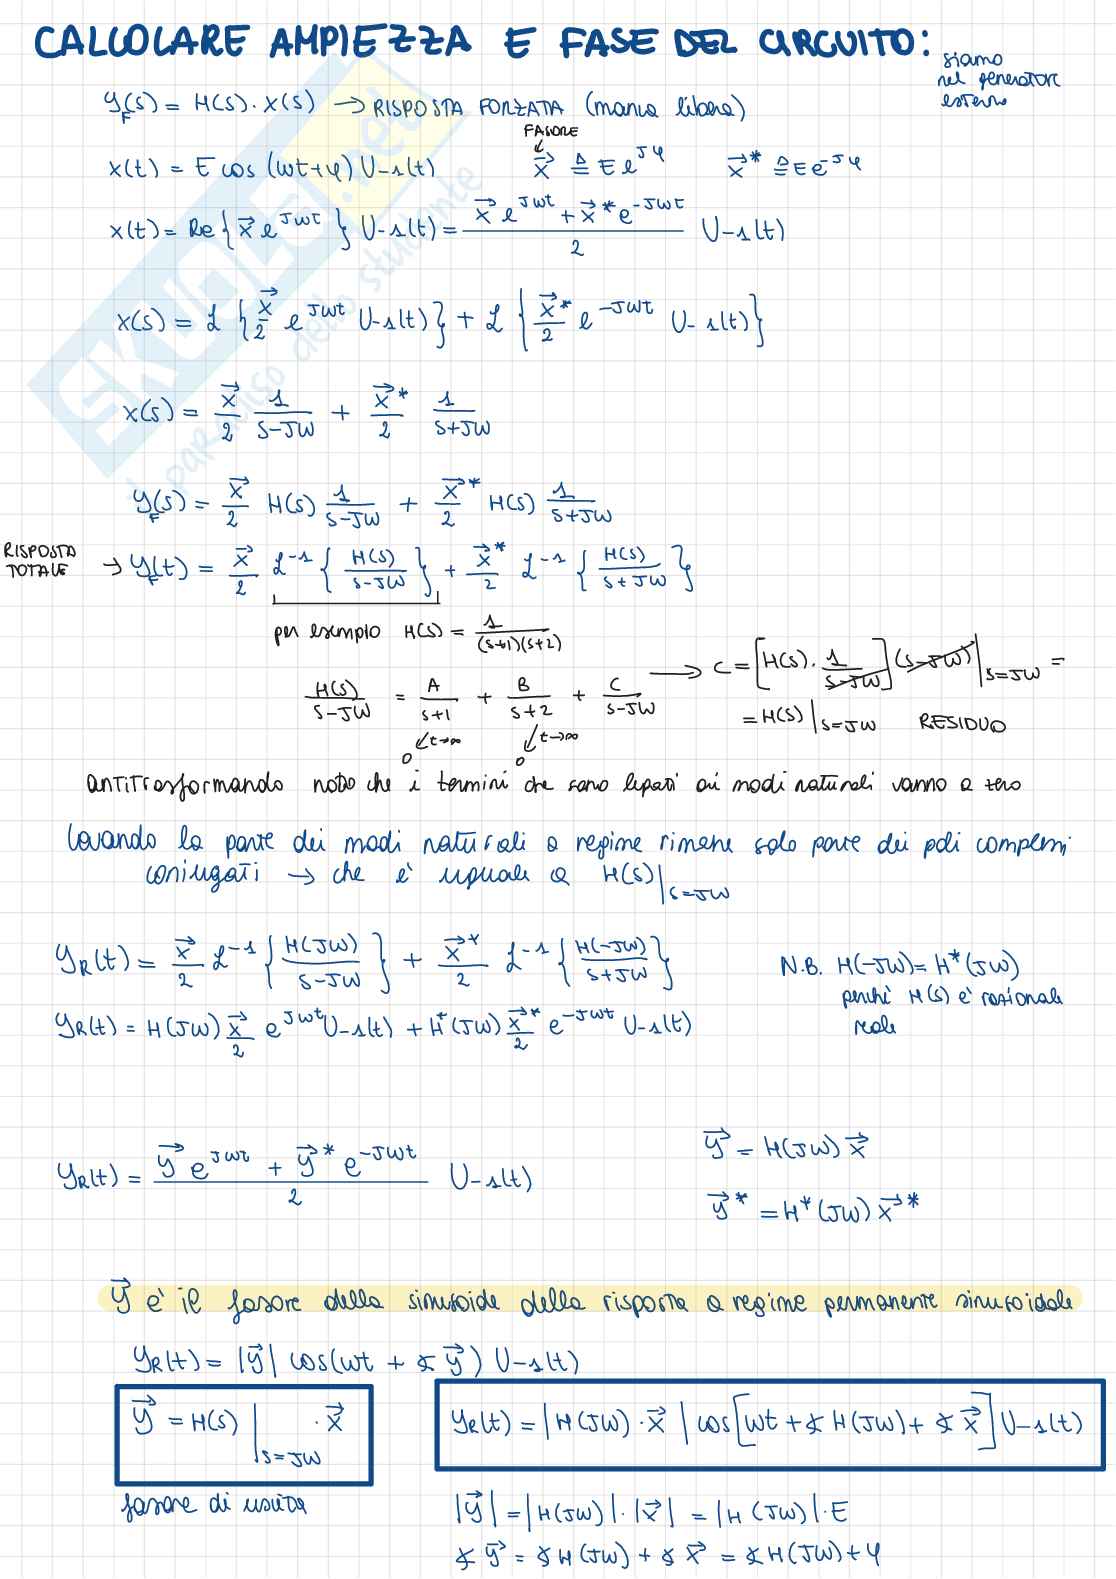 CALCOLARE AMPIEZZA E FASE DEL CIRCUITO:
siamo
nel generatore
esterno
Y_F(s) = H(s)·X(s) → RISPOSTA FORZATA (manca libera)
FASORE
x(t) = E cos(ωt+φ) U-1(t) x⃗ ≜ E e^{Jφ} x⃗* ≜ E e^{-Jφ}
x(t) = Re{x⃗ e^{Jωt}} U-1(t) = (x⃗ e^{Jωt} + x⃗* e^{-Jωt})/2 U-1(t)
X(s) = L{x⃗/2 e^{Jωt} U-1(t)} + L{x⃗*/2 e^{-Jωt} U-1(t)}
X(s) = x⃗/2 1/(s-Jω) + x⃗*/2 1/(s+Jω)
Y_F(s) = x⃗/2 H(s) 1/(s-Jω) + x⃗*/2 H(s) 1/(s+Jω)
RISPOSTA
TOTALE → Y_F(t) = x⃗/2 L^{-1}{H(s)/(s-Jω)} + x⃗*/2 L^{-1}{H(s)/(s+Jω)}
per esempio H(s) = 1/((s+1)(s+2))
H(s)/(s-Jω) = A/(s+1) + B/(s+2) + C/(s-Jω) → C = [H(s)·1/(s-Jω)](s-Jω)|s=Jω =
= H(s)|s=Jω RESIDUO
0 t→∞ 0 t→∞
antitrasformando noto che i termini che sono legati ai modi naturali vanno a zero
levando la parte dei modi naturali a regime rimane solo parte dei poli complessi
coniugati → che è uguale a H(s)|s=Jω
Y_R(t) = x⃗/2 L^{-1}{H(Jω)/(s-Jω)} + x⃗*/2 L^{-1}{H(-Jω)/(s+Jω)}
N.B. H(-Jω) = H*(Jω)
perché H(s) è razionale
reale
Y_R(t) = H(Jω) x⃗/2 e^{Jωt} U-1(t) + H*(Jω) x⃗*/2 e^{-Jωt} U-1(t)
Y_R(t) = (y⃗ e^{Jωt} + y⃗* e^{-Jωt})/2 U-1(t)
y⃗ = H(Jω) x⃗
y⃗* = H*(Jω) x⃗*
y⃗ è il fasore della sinusoide della risposta a regime permanente sinusoidale
Y_R(t) = |y⃗| cos(ωt + ∡ y⃗) U-1(t)
y⃗ = H(s)|s=Jω · x⃗
Y_R(t) = |H(Jω)·x⃗| cos[ωt + ∡ H(Jω) + ∡ x⃗] U-1(t)
fasore di uscita
|y⃗| = |H(Jω)|·|x⃗| = |H(Jω)|·E
∡ y⃗ = ∡ H(Jω) + ∡ x⃗ = ∡ H(Jω) + φ
SKUOLA.net
il paradiso dello studente